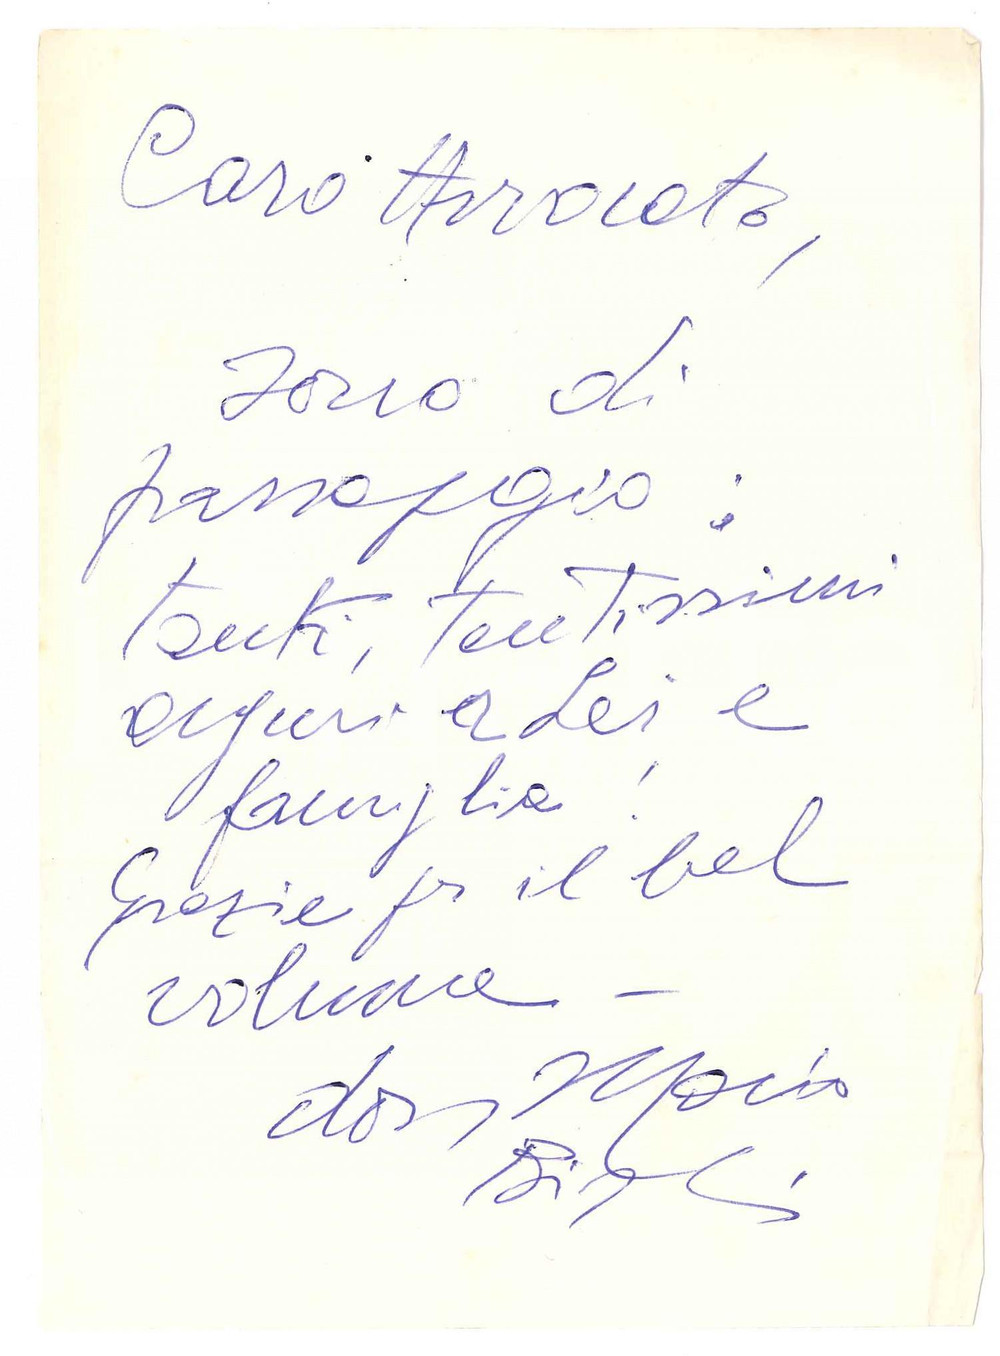 Caro Avvocato,
sono di
passaggio:
tanti, tantissimi
auguri a Lei e
famiglia!
Grazie per il bel
volume -
don Mario